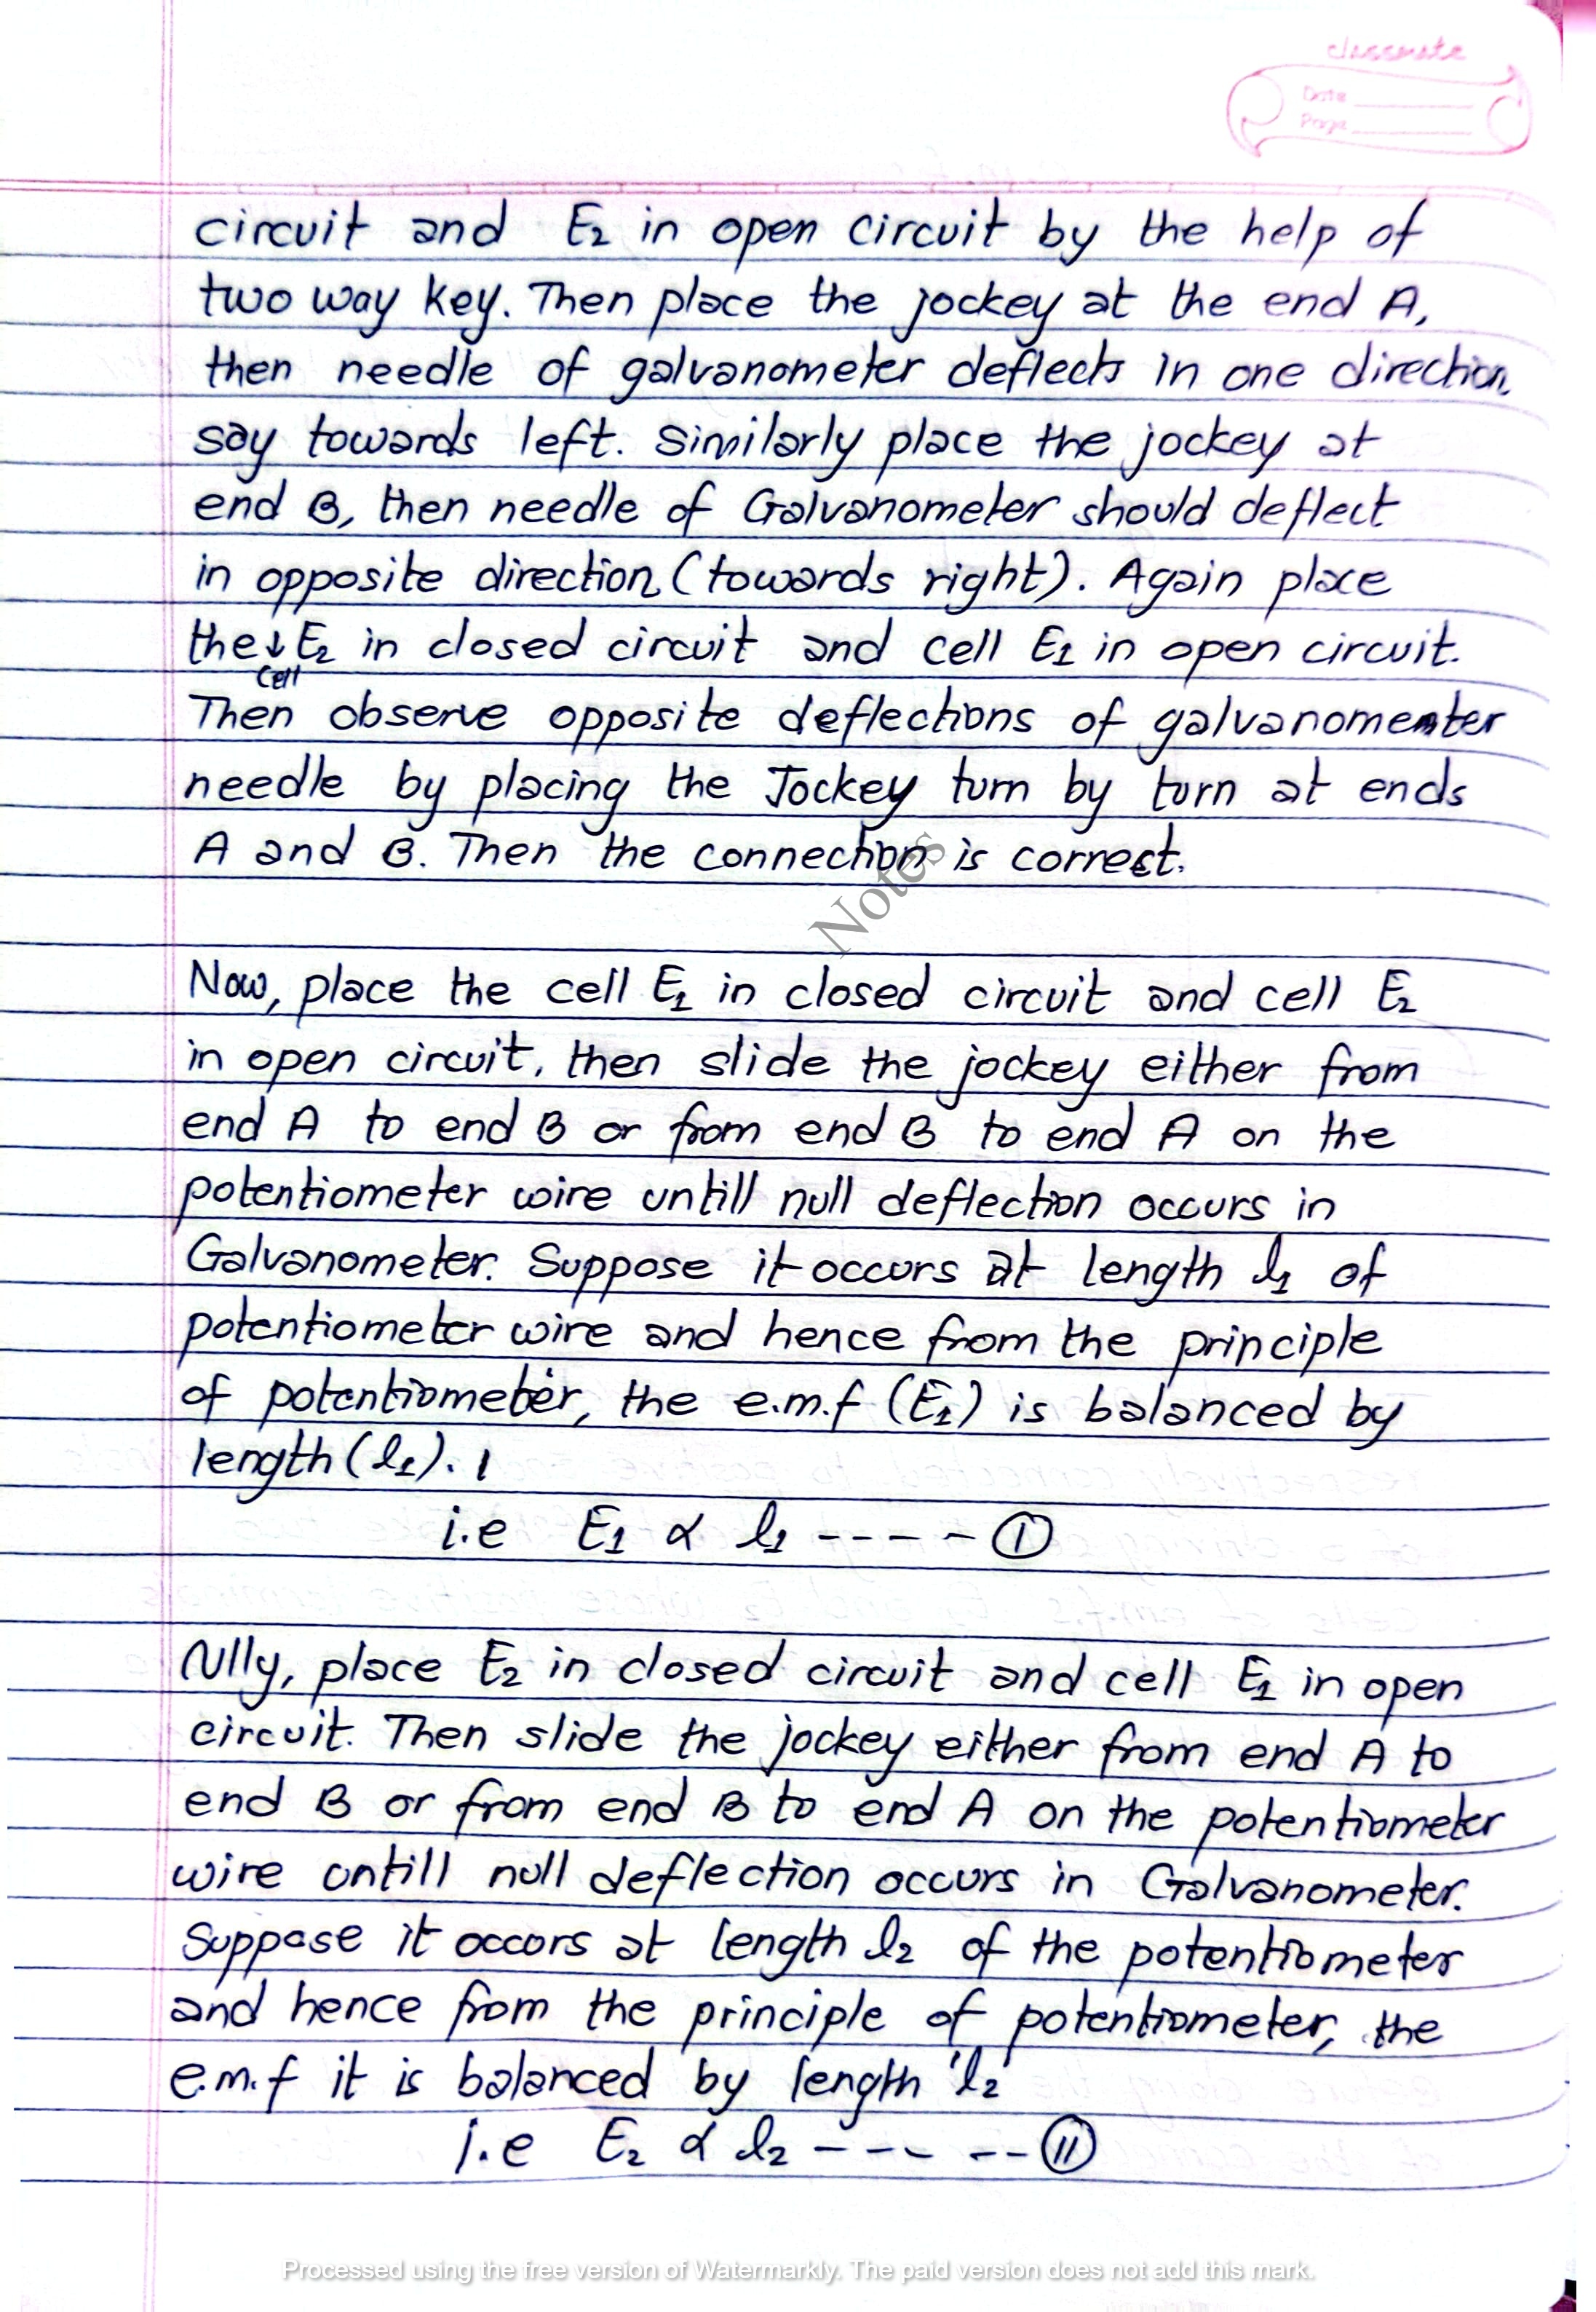 classmate
Date
Page
circuit and E₂ in open circuit by the help of
two way key. Then place the jockey at the end A,
then needle of galvanometer deflects in one direction,
say towards left. Similarly place the jockey at
end B, then needle of Galvanometer should deflect
in opposite direction (towards right). Again place
the ↓ E₂ in closed circuit and cell E₁ in open circuit.
Cell
Then observe opposite deflections of galvanomenter
needle by placing the Jockey turn by turn at ends
A and B. Then the connection is correct.
Notes
Now, place the cell E₁ in closed circuit and cell E₂
in open circuit, then slide the jockey either from
end A to end B or from end B to end A on the
potentiometer wire untill null deflection occurs in
Galvanometer. Suppose it occurs at length l₁ of
potentiometer wire and hence from the principle
of potentiometer, the e.m.f (E₁) is balanced by
length (l₁).
i.e E₁ ∝ l₁ ----- Ⓘ
Nlly, place E₂ in closed circuit and cell E₁ in open
circuit. Then slide the jockey either from end A to
end B or from end B to end A on the potentiometer
wire untill null deflection occurs in Galvanometer.
Suppose it occurs at length l₂ of the potentiometer
and hence from the principle of potentiometer, the
e.m.f it is balanced by length 'l₂'
i.e E₂ ∝ l₂ ---- -- (II)
Processed using the free version of Watermarkly. The paid version does not add this mark.